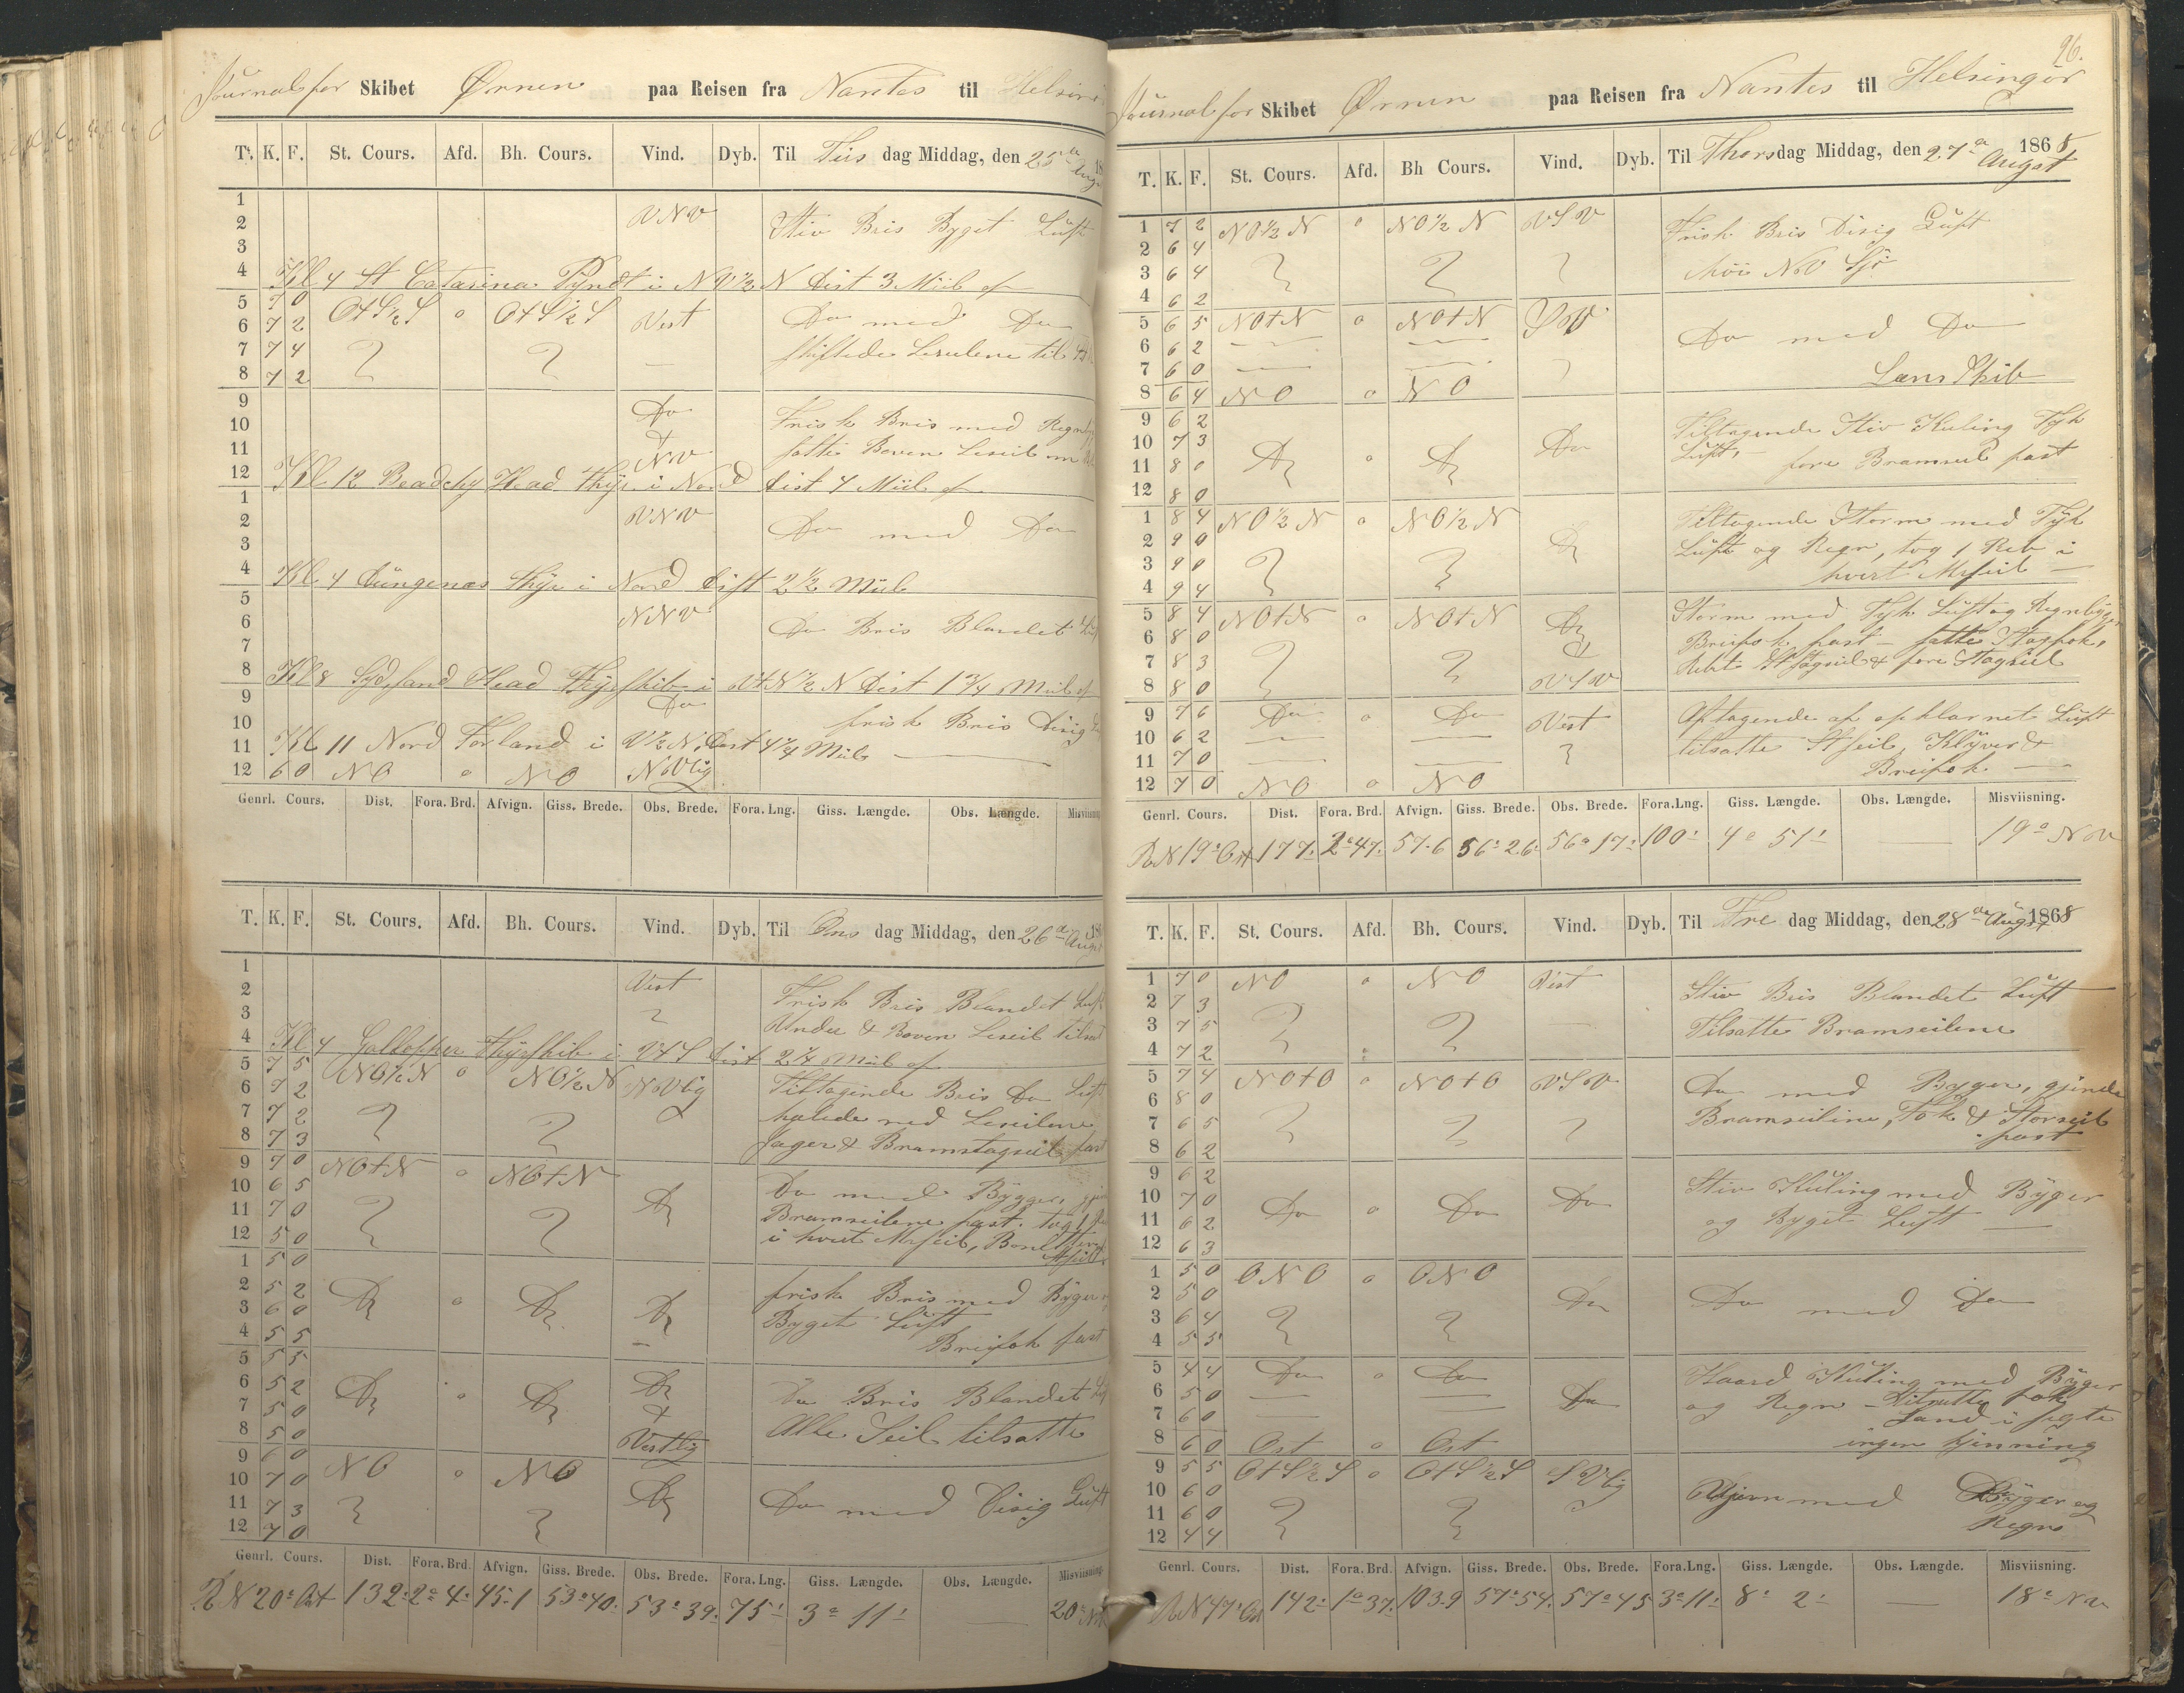 Journal for Skibet Ørnen paa Reisen fra Nantes til Helsin
T. K. F. St. Cours. Afd. Bh. Cours. Vind. Dyb. Til Tiis dag Middag, den 25de Aug 18
1
2 VNV Stiv Bris Byget Luft
3
4 Kl 4 St Catarina Pÿndt i NO½N Dist 3 Miil af
5 7 0 O+S½S o O+S½S Vest Do med Do
6 7 2
7 7 4 skiftede Leseilene til
8 7 2
9 Do Frisk Bris med Regn
10 &
11 NV satte Boven Leseil
12 Kl 12 Beachy Head Fhÿr i Nord Dist 4 Miil af
1 VNV
2 Do med Do
3
4 Kl 4 Düngenæs Fhÿr i Nord Dist 2½ Miil
5 NNV
6 Do Bris Blandet Luft
7
8 Kl 8 Sydsand Head Fhÿrskib i V+N½N Dist 1¾ Miil af
9 Do
10 frisk Bris Disig
11 Kl 11 Nord Forland i V½N, Dist 4¼ Miil
12 6 0 NO o NO NVlig
Genrl. Cours. Dist. Fora. Brd. Afvign. Giss. Brede. Obs. Brede. Fora. Lng. Giss. Længde. Obs. Længde. Misviisning
T. K. F. St. Cours. Afd. Bh. Cours. Vind. Dyb. Til Ons dag Middag, den 26de Aug
1 Vest
2 Frisk Bris Blandet Luft
3 Under & Boven Leseil tilsat
4 Kl 4 Gallopher Fhÿrskib i V+S Dist 2¼ Miil af
5 7 5 NO½N o NO½N NVlig Tiltagende Bris Do Luft
6 7 2
7 7 2 halede ned Leseilene
8 7 3 Jager & Bramstagseil fast
9 7 0 NO+N o NO+N Do Do med Bÿger
10 6 5
11 7 0 Bramseilene fast. tog 1
12 5 0 i hvert Mrseil,
1 5 0
2 5 2 Do o Do Do frisk Bris med Bÿger
3 6 0 Bÿget Luft
4 5 5 Breifok fast
5 5 5
6 5 2 Do o Do Do Do Bris Blandet
7 5 0 &
8 5 0 Vestlig Alle Seil tilsatte
9 6 0 NO o NO
10 7 0 Do
11 7 3 Do med Disig Luft
12 7 0
Genrl. Cours. Dist. Fora. Brd. Afvign. Giss. Brede. Obs. Brede. Fora. Lng. Giss. Længde. Obs. Længde. Misviisning
R N 20° Ost 132 2° 4' 45.1 53° 40' 53° 39' 75' 3° 11' — 20° NV
96.
Journal for Skibet Ørnen paa Reisen fra Nantes til Helsingör
T. K. F. St. Cours. Afd. Bh Cours. Vind. Dyb. Til Thorsdag Middag, den 27de Augst 1868
1 7 2 NO½N o NO½N VSV Frisk Bris Disig Luft
2 6 4
3 6 4 höi NV Sjö
4 6 2
5 6 5 NO+N o NO+N SV Do med Do
6 6 2
7 6 0
8 6 4 NO o NO Læns Skib
9 6 2 Tiltagende Stiv Kuling Tÿk
10 7 3 Do o Do Do Luft,
11 8 0 fore Bramseil fast
12 8 0
1 8 4 NO½N o NO½N Do Tiltagende Storm med Tÿk
2 9 0 Luft og Regn, tog 1 Reb i
3 9 0 hvert Mrseil
4 9 4
5 8 4 NO+N o NO+N Do Storm med Tÿk Luft og Regnbÿger
6 8 0 Breifok fast — satte Stagfok,
7 8 3 & Rebt Stagseil & fore Stagseil
8 8 0 VSV
9 7 6 Do o Do Vest Aftagende af opklarnet Luft
10 6 2
11 7 0 tilsatte Stseil, Klÿver &
12 7 0 NO o NO Breifok
Genrl. Cours. Dist. Fora. Brd. Afvign. Giss. Brede. Obs. Brede. Fora. Lng. Giss. Længde. Obs. Længde. Misviisning.
R N 19° Ost 177' 2° 47' 57.6 56° 26' 56° 17' 100' 4° 51' — 19° NV
T. K. F. St. Cours. Afd. Bh. Cours. Vind. Dyb. Til Fre dag Middag, den 28de Augst 1868
1 7 0 NO o NO Vest Stiv Bris Blandet Luft
2 7 3
3 7 5 Tilsatte Bramseilene
4 7 2
5 7 4 NO+O o NO+O VSV Do med Bÿger, gjorde
6 8 0
7 6 5 Bramseilene, Fok & Storseil
8 6 2 fast
9 6 2 Stiv Kuling med Bÿger
10 7 0 Do o Do Do
11 6 2 og Bÿget Luft
12 6 3
1 5 0 ONO o ONO
2 5 0 Do Do med Do
3 6 4
4 5 5
5 4 4 Do o Do Haard Kuling med Bÿger
6 5 0 Do og Regn — tilsatte fok
7 6 0 Land i sigte
8 6 0 Ost o Ost ingen kjenning
9 5 5 O+S½S o O+S½S SVlig
10 6 0 med Bÿger og
11 6 0 Regn
12 4 4
Genrl. Cours. Dist. Fora. Brd. Afvign. Giss. Brede. Obs. Brede. Fora. Lng. Giss. Længde. Obs. Længde. Misviisning.
R N 47° Ost 142' 1° 37' 103.9 57° 54' 57° 45 3° 11' 8° 2' — 18° NV